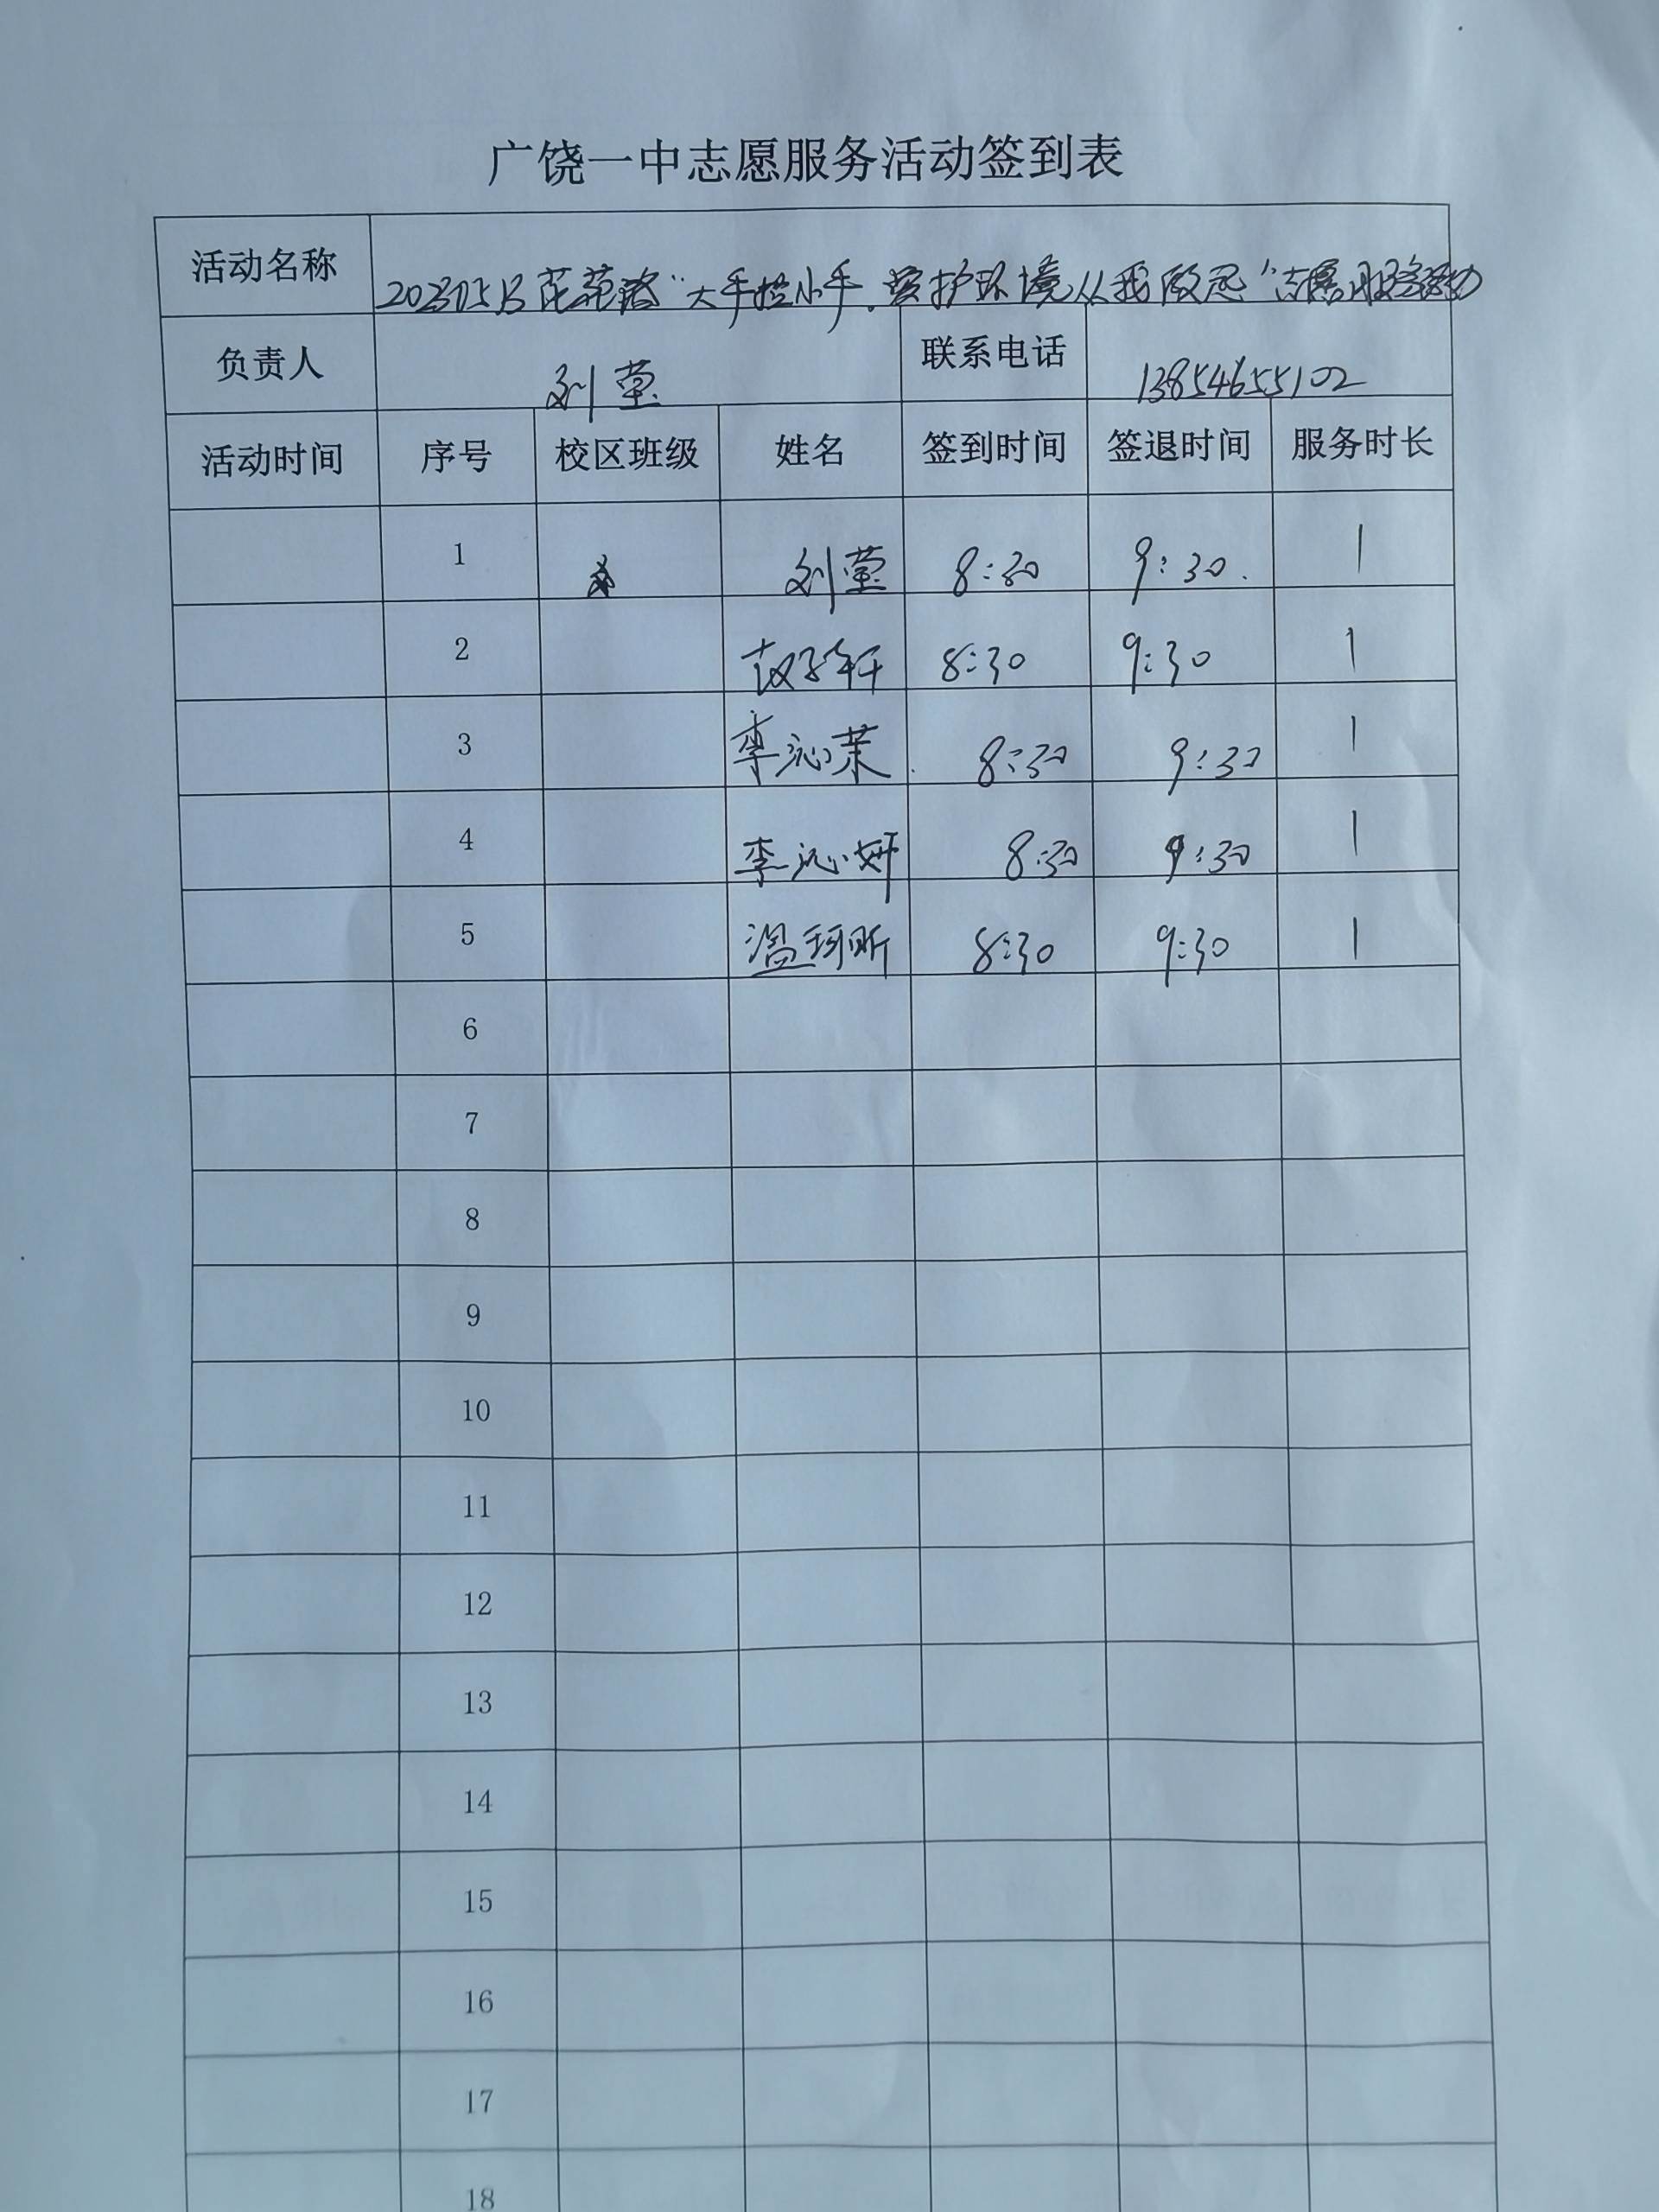 广饶一中志愿服务活动签到表
活动名称 "大手拉小手，爱护环境从我做起"志愿服务活动
负责人 刘莹 联系电话 13854655102
活动时间 序号 校区班级 姓名 签到时间 签退时间 服务时长
1 刘莹 8:30 9:30. 1
2 子轩 8:30 9:30 1
3 李沁茉 8:30 9:30 1
4 李沁妍 8:30 9:30 1
5 温珂昕 8:30 9:30 1
6
7
8
9
10
11
12
13
14
15
16
17
18